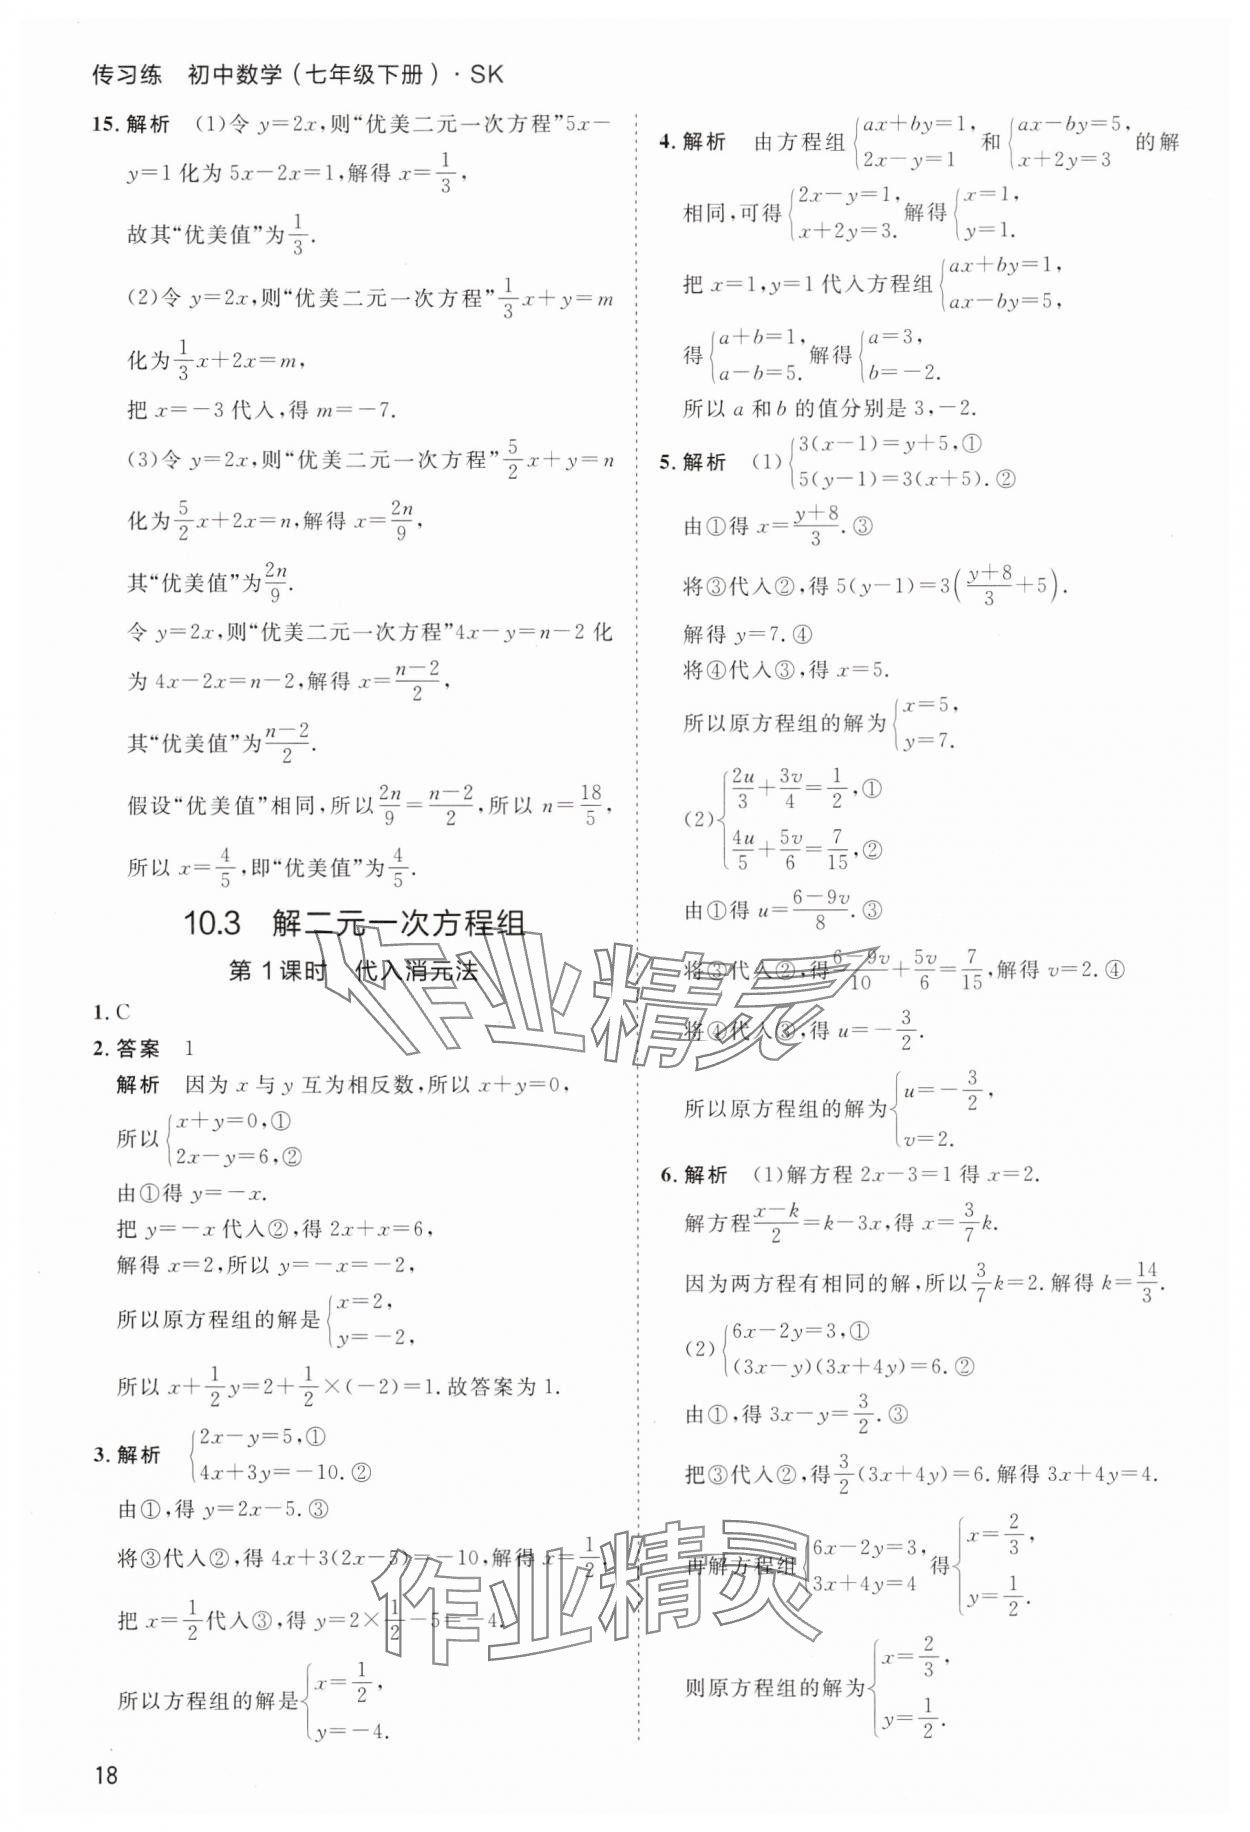 传习练 初中数学(七年级下册)·SK
15. 解析 (1)令 y=2x,则“优美二元一次方程”5x-
y=1化为 5x-2x=1,解得 x=1/3,
故其“优美值”为1/3.
(2)令 y=2x,则“优美二元一次方程”1/3x+y=m
化为1/3x+2x=m,
把 x=-3代入,得 m=-7.
(3)令 y=2x,则“优美二元一次方程”5/2x+y=n
化为5/2x+2x=n,解得 x=2n/9,
其“优美值”为2n/9.
令 y=2x,则“优美二元一次方程”4x-y=n-2 化
为 4x-2x=n-2,解得 x=(n-2)/2,
其“优美值”为(n-2)/2.
假设“优美值”相同,所以2n/9=(n-2)/2,所以 n=18/5,
所以 x=4/5,即“优美值”为4/5.
10.3 解二元一次方程组
第 1 课时 代入消元法
1. C
2. 答案 1
解析 因为 x 与 y 互为相反数,所以 x+y=0,
所以{x+y=0,①
2x-y=6,②
由①得 y=-x.
把 y=-x代入②,得 2x+x=6,
解得 x=2,所以 y=-x=-2,
所以原方程组的解是{x=2,
y=-2,
所以 x+1/2y=2+1/2×(-2)=1.故答案为 1.
3. 解析 {2x-y=5,①
4x+3y=-10.②
由①,得 y=2x-5.③
将③代入②,得 4x+3(2x-5)=-10,解得 x=1/2,
把 x=1/2代入③,得 y=2×1/2-5=-4.
所以方程组的解是{x=1/2,
y=-4.
18
4. 解析 由方程组{ax+by=1,
2x-y=1 和{ax-by=5,
x+2y=3 的解
相同,可得{2x-y=1,
x+2y=3. 解得{x=1,
y=1.
把 x=1,y=1代入方程组{ax+by=1,
ax-by=5,
得{a+b=1,
a-b=5. 解得{a=3,
b=-2.
所以 a 和 b 的值分别是 3,-2.
5. 解析 (1){3(x-1)=y+5,①
5(y-1)=3(x+5).②
由①得 x=(y+8)/3.③
将③代入②,得 5(y-1)=3((y+8)/3+5).
解得 y=7.④
将④代入③,得 x=5.
所以原方程组的解为{x=5,
y=7.
(2){2u/3+3v/4=1/2,①
4u/5+5v/6=7/15,②
由①得 u=(6-9v)/8.③
将③代入②,得(6-9v)/10+5v/6=7/15,解得 v=2.④
将④代入③,得 u=-3/2.
所以原方程组的解为{u=-3/2,
v=2.
6. 解析 (1)解方程 2x-3=1 得 x=2.
解方程(x-k)/2=k-3x,得 x=3/7k.
因为两方程有相同的解,所以3/7k=2.解得 k=14/3.
(2){6x-2y=3,①
(3x-y)(3x+4y)=6.②
由①,得 3x-y=3/2.③
把③代入②,得3/2(3x+4y)=6.解得 3x+4y=4.
再解方程组{6x-2y=3,
3x+4y=4 得{x=2/3,
y=1/2.
则原方程组的解为{x=2/3,
y=1/2.
作业精灵
作业精灵